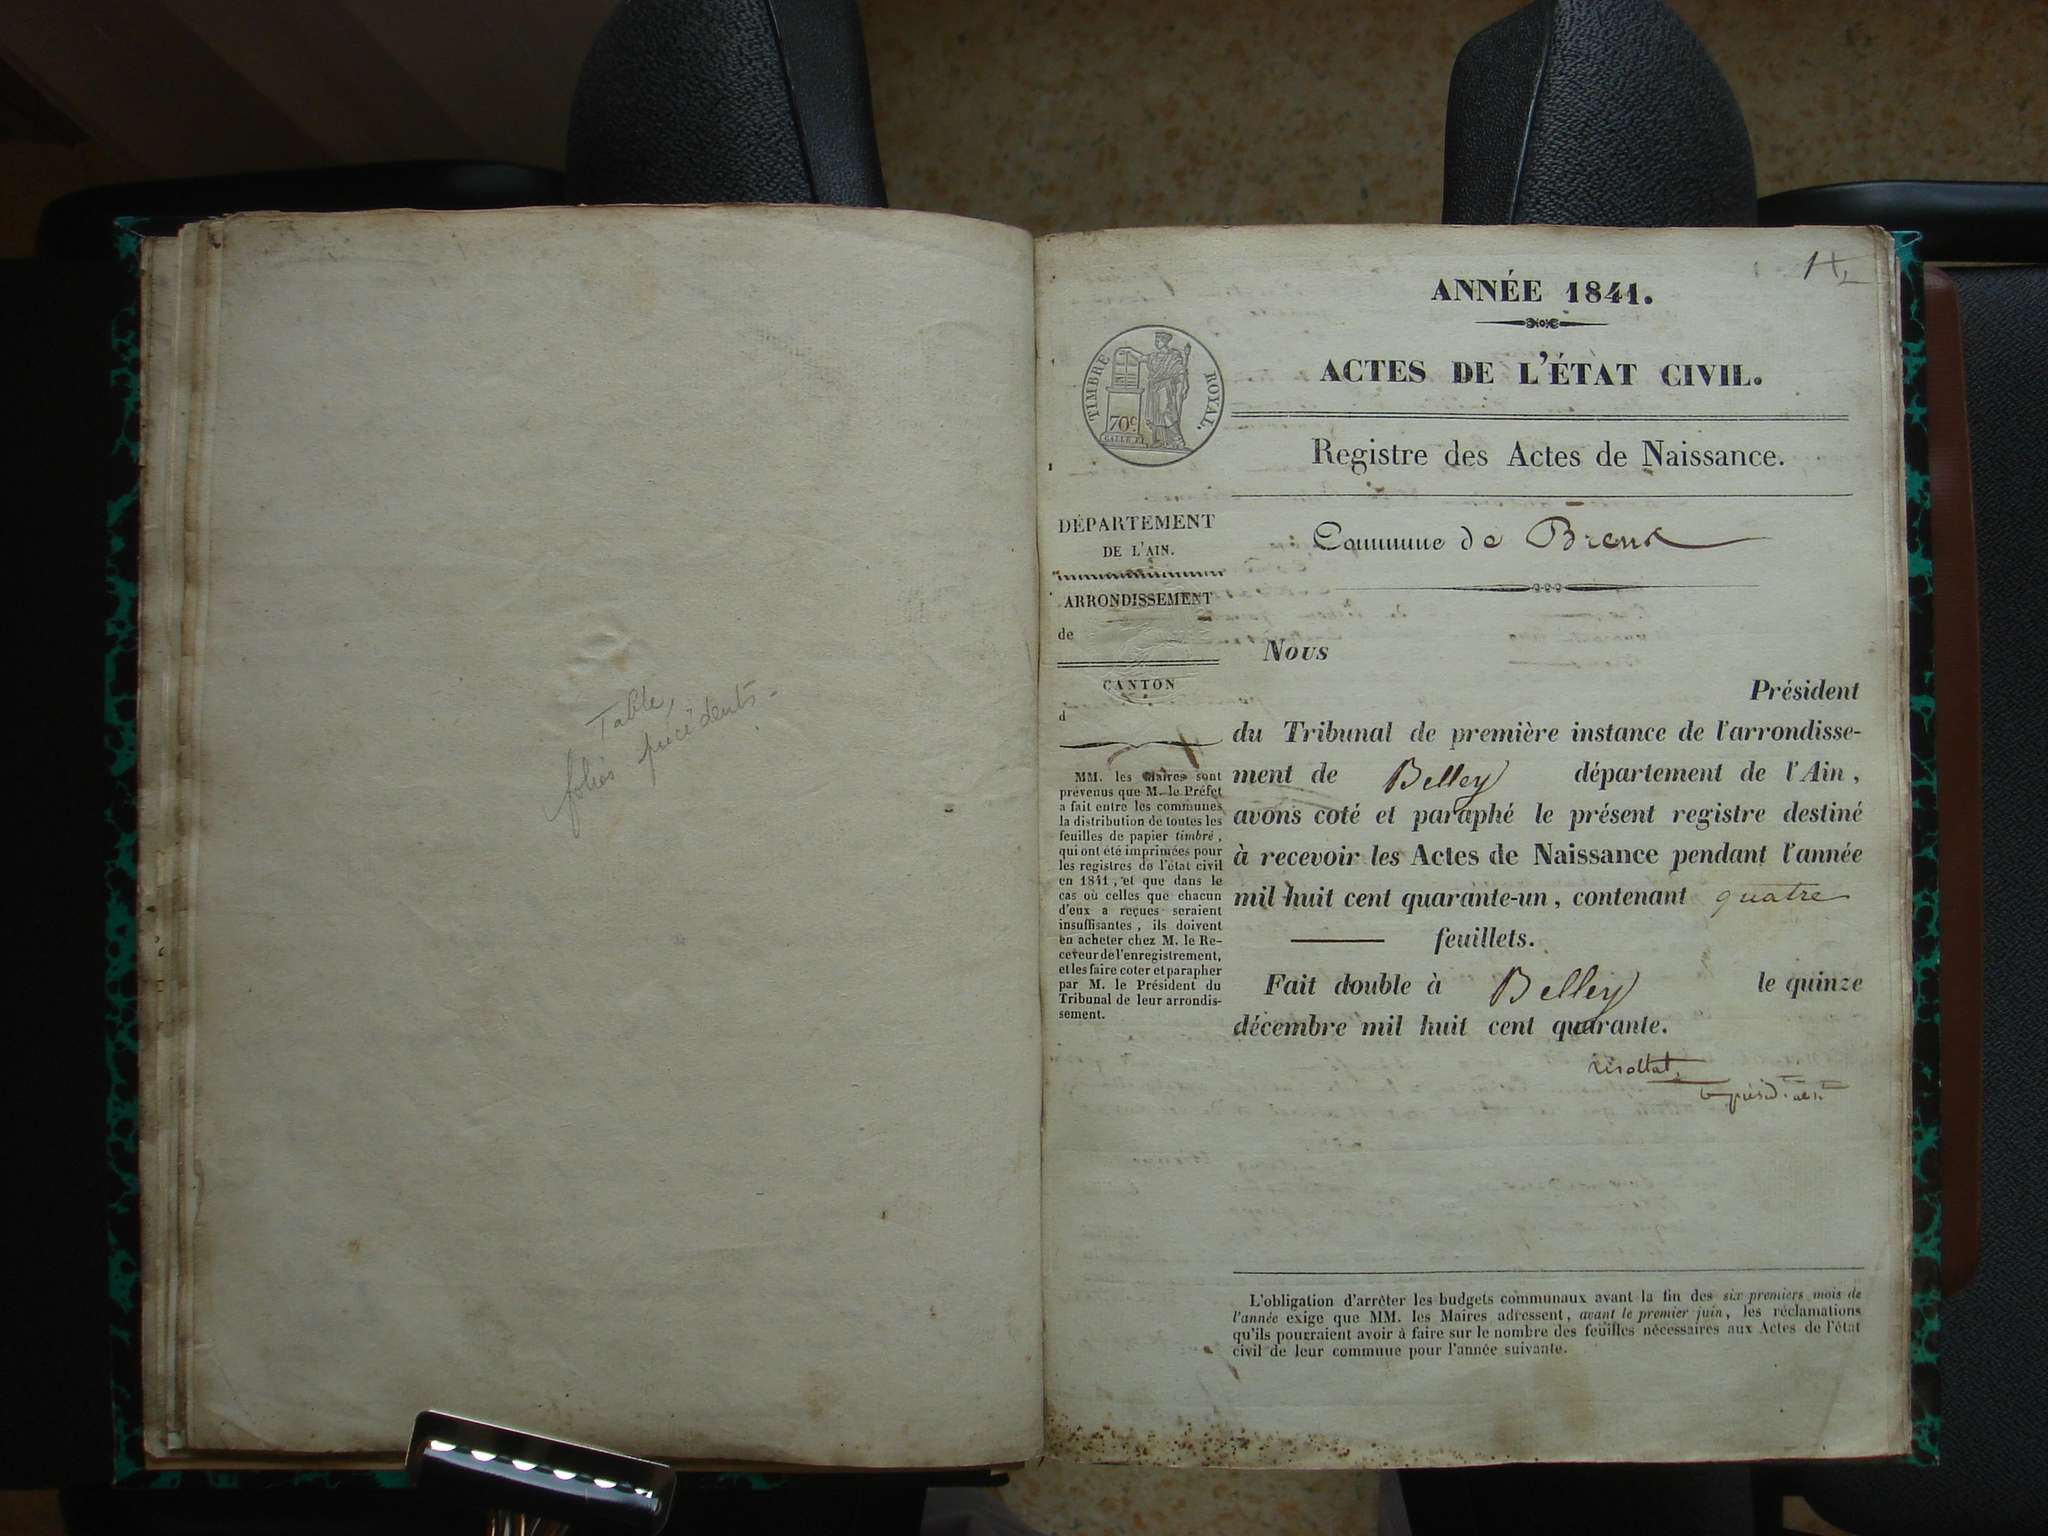 Table,
folios précédents.
ANNÉE 1841.
ACTES DE L'ÉTAT CIVIL.
TIMBRE ROYAL.
70c
Registre des Actes de Naissance.
DÉPARTEMENT
DE L'AIN.
ARRONDISSEMENT
de
CANTON
d
MM. les Maires sont
prévenus que M. le Préfet
a fait entre les communes
la distribution de toutes les
feuilles de papier timbré,
qui ont été imprimées pour
les registres de l'état civil
en 1841, et que dans le
cas où celles que chacun
d'eux a reçues seraient
insuffisantes, ils doivent
en acheter chez M. le Re-
ceveur de l'enregistrement,
et les faire coter et parapher
par M. le Président du
Tribunal de leur arrondis-
sement.
Commune de Brens
Nous
Président
du Tribunal de première instance de l'arrondisse-
ment de Belley département de l'Ain,
avons coté et paraphé le présent registre destiné
à recevoir les Actes de Naissance pendant l'année
mil huit cent quarante-un, contenant quatre
feuillets.
Fait double à Belley le quinze
décembre mil huit cent quarante.
L'obligation d'arrêter les budgets communaux avant la fin des six premiers mois de
l'année exige que MM. les Maires adressent, avant le premier juin, les réclamations
qu'ils pourraient avoir à faire sur le nombre des feuilles nécessaires aux Actes de l'état
civil de leur commune pour l'année suivante.